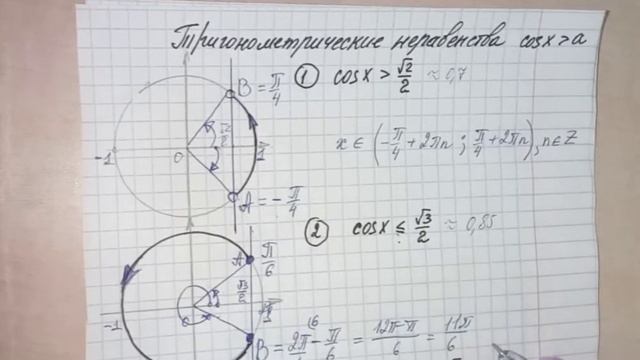 Тригонометрические неравенства cosx>a
① cosx > √2/2 ≈ 0,7
B = π/4
√2/2
-1 0 1
x ∈ (-π/4 + 2πn ; π/4 + 2πn), n∈Z
A = -π/4
② cosx ≤ √3/2 ≈ 0,85
A π/6
√3/2
-1 0 1
B = 2π - π/6 = 12π-π/6 = 11π/6